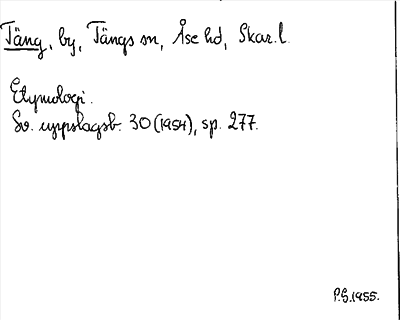 Täng, by, Tängs sn, Åse hd, Skar.l.
Etymologi.
Sv. uppslagsb. 30 (1954), sp. 277.
P.G.1955.